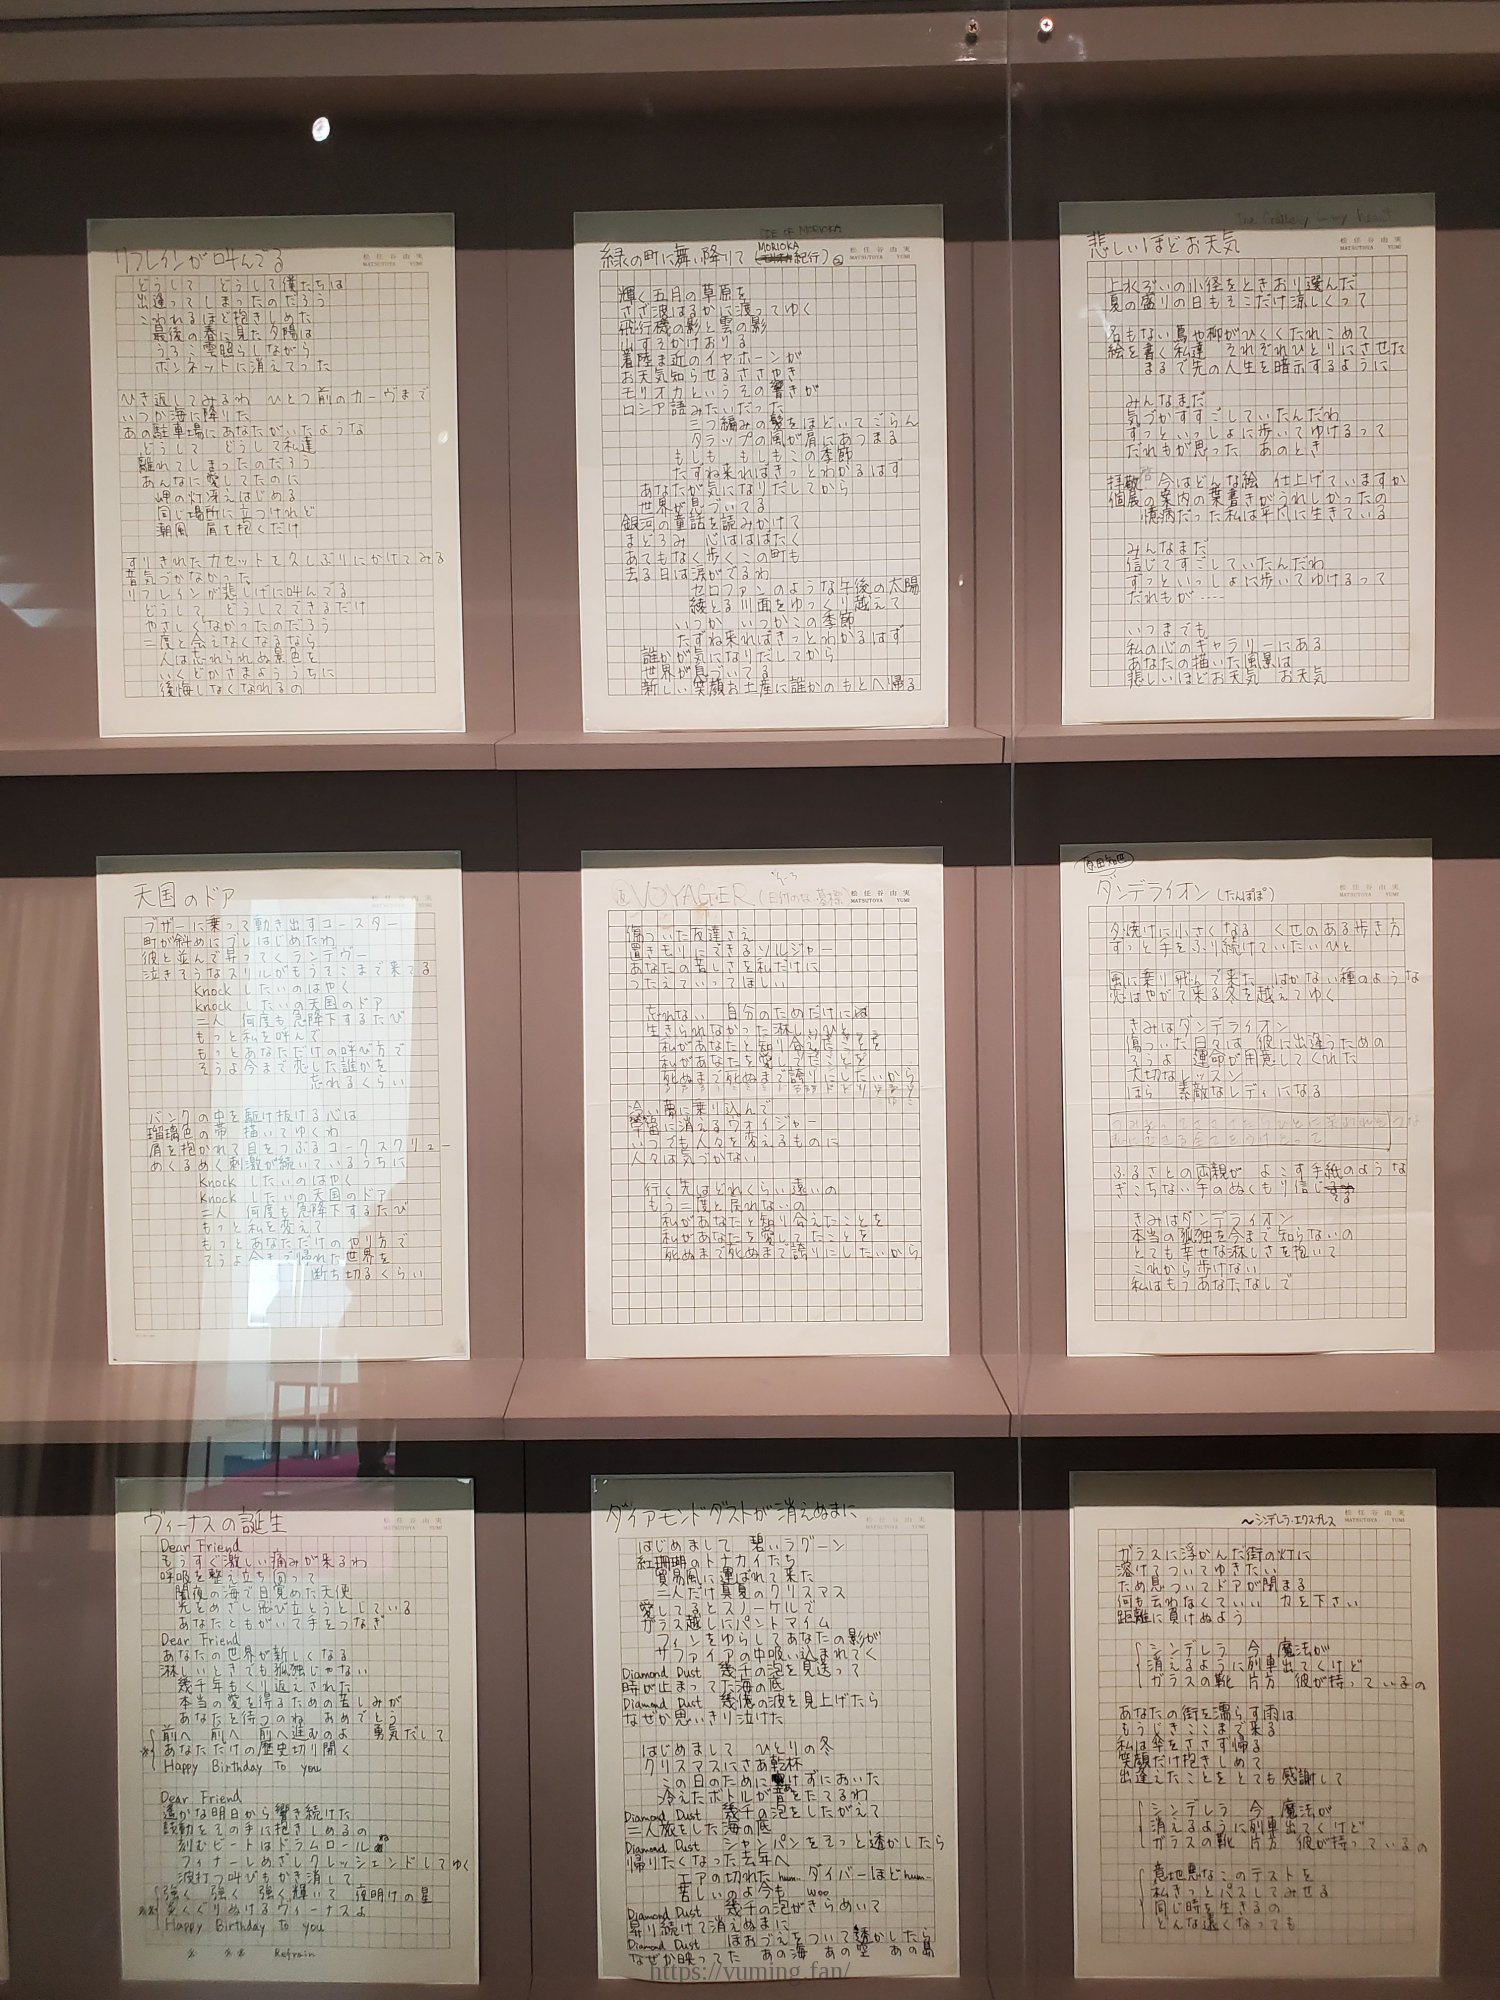 リフレインが叫んでる
松任谷由実
MATSUTOYA YUMI
どうして どうして僕たちは
出逢ってしまったのだろう
こわれるほど抱きしめた
最後の春に見た夕陽は
うろこ雲照らしながら
ボンネットに消えてった
ひき返してみるわ ひとつ前のカーヴまで
いつか海に降りた
あの駐車場にあなたがいたような
どうして どうして私達
離れてしまったのだろう
あんなに愛してたのに
岬の灯冴えはじめる
同じ場所に立つけれど
潮風 肩を抱くだけ
すりきれたカセットを久しぶりにかけてみる
昔気づかなかった
リフレインが悲しげに叫んでる
どうして どうしてできるだけ
やさしくなかったのだろう
二度と会えなくなるなら
人は忘れられぬ景色を
いくどかさまよううちに
後悔しなくなれるの
SIDE OF MORIOKA
緑の町に舞い降りて
MORIOKA
紀行)
松任谷由実
MATSUTOYA YUMI
輝く五月の草原を
さざ波はるかに渡ってゆく
飛行機の影と雲の影
山すそかけおりる
着陸ま近のイヤホーンが
お天気知らせるささやき
モリオカというその響きが
ロシア語みたいだった
三つ編みの髪をほどいてごらん
タラップの風が肩にあつまる
もしも もしもこの季節
たずね来ればきっとわかるはず
あなたが気になりだしてから
世界が息づいてる
銀河の童話を読みかけて
まどろみ 心ははばたく
あてもなく歩くこの町も
去る日は涙がでるわ
セロファンのような午後の太陽
綾とる川面をゆっくり越えて
いつか いつかこの季節
たずね来ればきっとわかるはず
誰かが気になりだしてから
世界が息づいてる
新しい笑顔お土産に誰かのもとへ帰る
The Gallery in my heart
悲しいほどお天気
松任谷由実
MATSUTOYA YUMI
上水ぞいの小径をときおり選んだ
夏の盛りの日もそこだけ涼しくって
名もない蔦や柳がひくくたれこめて
絵を書く私達 それぞれひとりにさせた
まるで先の人生を暗示するように
みんなまだ
気づかずすごしていたんだわ
ずっといっしょに歩いてゆけるって
だれもが思った あのとき
拝啓 今はどんな絵 仕上げていますか
個展の案内の葉書きがうれしかったの
憶病だった私は平凡に生きている
みんなまだ
信じてすごしていたんだわ
ずっといっしょに歩いてゆけるって
だれもが……
いつまでも
私の心のギャラリーにある
あなたの描いた風景は
悲しいほどお天気 お天気
天国のドア
松任谷由実
MATSUTOYA YUMI
ブザーに乗って動き出すコースター
町が斜めにブレはじめたわ
彼と並んで昇ってくランデヴー
泣きそうなスリルがもうそこまで来てる
Knock したいのはやく
Knock したいの天国のドア
二人 何度も急降下するたび
もっと私を呼んで
もっとあなただけの呼び方で
そうよ今まで恋した誰かを
忘れるくらい
バンクの中を駆け抜ける心は
瑠璃色の帯 描いてゆくわ
肩を抱かれて目をつぶるコークスクリュー
めくるめく刺激が続いているうちに
Knock したいのはやく
Knock したいの天国のドア
二人 何度も急降下するたび
もっと私を変えて
もっとあなただけのやり方で
そうよ今まで帰れた世界を
断ち切るくらい
VOYAGER (日付のない墓標)
松任谷由実
MATSUTOYA YUMI
傷ついた友達さえ
置きざりにできるソルジャー
あなたの苦しさを私だけに
つたえていってほしい
忘れない 自分のためだけには
生きられなかった淋しいひと
私があなたと知り合えたことを
私があなたを愛してたことを
死ぬまで死ぬまで誇りにしたいから
冷い夢に乗り込んで
宇宙に消えるヴォイジャー
いつでも人々を変えるものに
人々は気づかない
行く先はどれくらい遠いの
もう二度と戻れないの
私があなたと知り合えたことを
私があなたを愛してたことを
死ぬまで死ぬまで誇りにしたいから
原田知世
ダンデライオン(たんぽぽ)
松任谷由実
MATSUTOYA YUMI
夕焼けに小さくなる くせのある歩き方
ずっと手をふり続けていたいひと
風に乗り飛んで来た はかない種のような
恋はやがて来る冬を越えてゆく
きみはダンデライオン
傷ついた日々は 彼に出逢うための
そうよ 運命が用意してくれた
大切なレッスン
ほら 素敵なレディになる
ふるさとの両親が よこす手紙のような
ぎこちない手のぬくもり信じてる
きみはダンデライオン
本当の孤独を今まで知らないの
とても幸せな淋しさを抱いて
これから歩けない
私はもうあなたなしで
ヴィーナスの誕生
松任谷由実
MATSUTOYA YUMI
Dear Friend
もうすぐ激しい痛みが来るわ
呼吸を整え立ち向って
闇夜の海で目覚めた天使
光をめざし飛び立とうとしている
あなたともがいて手をつなぎ
Dear Friend
あなたの世界が新しくなる
淋しいときでも孤独じゃない
幾千年もくり返えされた
本当の愛を得るための苦しみが
あなたを待つのね おめでとう
前へ 前へ 前へ進むのよ 勇気だして
あなただけの歴史切り開く
Happy Birthday to you
Dear Friend
遥かな明日から響き続けた
鼓動をその手に抱きしめるの
刻むビートはドラムロール
フィナーレめざしクレッシェンドしてゆく
波打つ叫びもかき消して
強く 強く 強く輝いて 夜明けの星
突くぐりぬけるヴィーナスよ
Happy Birthday to you
※ ※※ Refrain
ダイアモンドダストが消えぬまに
松任谷由実
MATSUTOYA YUMI
はじめまして 碧いラグーン
紅珊瑚のトナカイたち
貿易風に運ばれて来た
二人だけ真夏のクリスマス
愛してるとスノーケルで
ガラス越しにパントマイム
フィンをゆらしてあなたの影が
サファイアの中吸い込まれてく
Diamond Dust 幾千の泡を見送って
時が止まってた海の底
Diamond Dust 幾億の波を見上げたら
なぜか思いきり泣けた
はじめまして ひとりの冬
クリスマスにさあ乾杯
この日のために開けずにおいた
冷えたボトルが音をたてるわ
Diamond Dust 幾千の泡をしたがえて
二人旅をした海の底
Diamond Dust シャンパンをそっと透かしたら
帰りたくなった去年へ
エアの切れた hum… ダイバーほど hum…
苦しいのよ今も woo
Diamond Dust 幾千の泡がきらめいて
昇り続けて消えぬまに
Diamond Dust ほおづえをついて透かしたら
なぜか映ってた あの海 あの空 あの島
～シンデレラ・エクスプレス
松任谷由実
MATSUTOYA YUMI
ガラスに浮かんだ街の灯に
溶けてついてゆきたい
ため息ついてドアが閉まる
何も云わなくていい 力を下さい
距離に負けぬよう
シンデレラ 今 魔法が
消えるように列車出てくけど
ガラスの靴 片方 彼が持っているの
あなたの街を濡らす雨は
もうじきここまで来る
私は傘をささず帰る
笑顔だけ抱きしめて
出逢えたことをとても感謝して
シンデレラ 今 魔法が
消えるように列車出てくけど
ガラスの靴 片方 彼が持っているの
意地悪なこのテストを
私きっとパスしてみせる
同じ時を生きるの
どんな遠くなっても
https://yuming.fan/